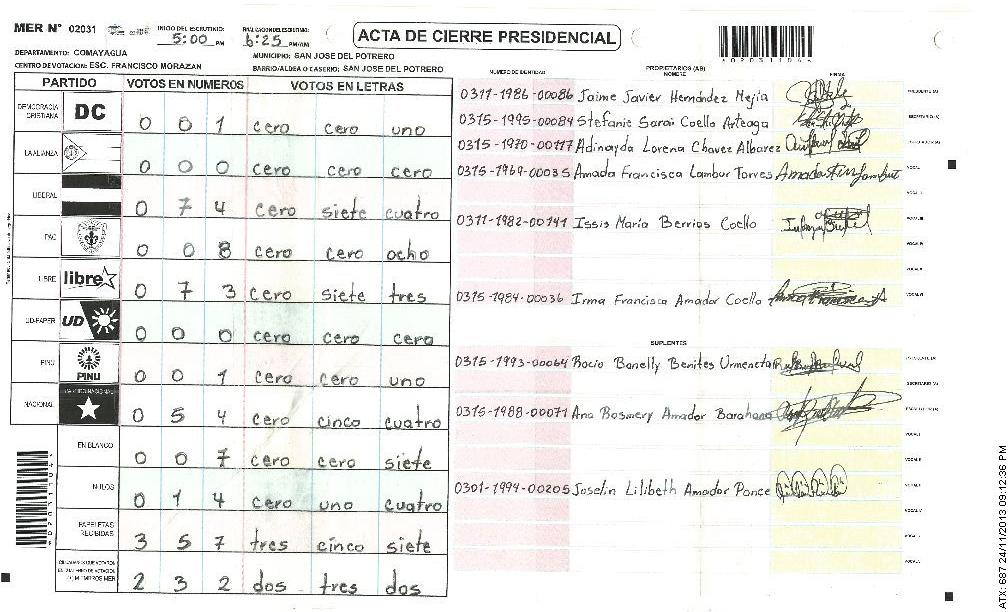 MER N° 02031
INICIO DEL ESCRUTINIO: 5:00 PM
6:25 PM/AM
ACTA DE CIERRE PRESIDENCIAL
DEPARTAMENTO: COMAYAGUA
MUNICIPIO: SAN JOSE DEL POTRERO
CENTRO DE VOTACION: ESC. FRANCISCO MORAZAN
BARRIO/ALDEA O CASERIO: SAN JOSE DEL POTRERO
PARTIDO VOTOS EN NUMEROS VOTOS EN LETRAS
DEMOCRACIA CRISTIANA DC 0 0 1 cero cero uno
LA ALIANZA 0 0 0 cero cero cero
LIBERAL 0 7 4 cero siete cuatro
PAC 0 0 8 cero cero ocho
LIBRE libre 0 7 3 cero siete tres
UD-FAPER UD 0 0 0 cero cero cero
PINU PINU 0 0 1 cero cero uno
NACIONAL PARTIDO NACIONAL 0 5 4 cero cinco cuatro
EN BLANCO 0 0 7 cero cero siete
NULOS 0 1 4 cero uno cuatro
PAPELETAS RECIBIDAS 3 5 7 tres cinco siete
2 3 2 dos tres dos
NUMERO DE IDENTIDAD
PROPIETARIOS (AS)
NOMBRE
FIRMA
0311-1986-00086 Jaime Javier Hernández Mejia PRESIDENTE (A)
0315-1995-00084 Stefanie Sarai Coello Arteaga SECRETARIO (A)
0315-1970-00117 Adinayda Lorena Chavez Albarez
0315-1969-00035 Amada Francisca Lambur Torres
0311-1982-00141 Issis Maria Berrios Coello
0315-1984-00036 Irma Francisca Amador Coello
SUPLENTES
0315-1993-00064 Rocio Banelly Benites Urmeneta
0315-1988-00071 Ana Rosmery Amador Barahona
0301-1994-00205 Joselin Lilibeth Amador Ponce
ATX: 687 24/11/2013 09:12:36 PM